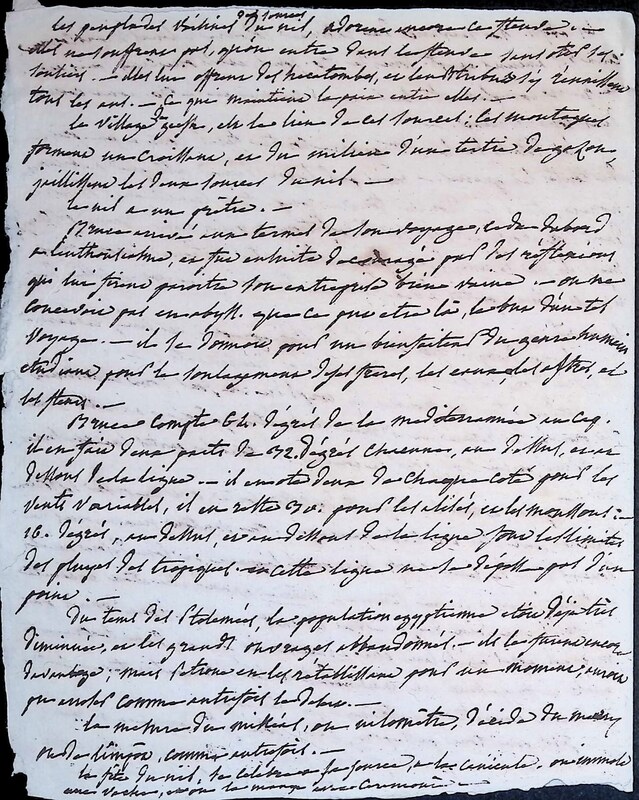 les peuplades voisines des sources du nil, adorent encore ce fleuve. —
elles ne souffrent pas, qu'on entre dans le fleuve sans oter ses
souliers. — elles lui offrent des hecatombes, et les tribus s'y reunissent
tous les ans. — ce qui maintient la paix entre elles. —
le village geesh, est le lieu de ces sources: les montagnes
forment un croissant, et du milieu d'un tertre de gazon,
jaillissent les deux sources du nil. —
le nil a un prêtre. —
Bruce arrivé au terme de son voyage, ceda d'abord
a l'enthousiasme, et fut ensuite decouragé par des réflexions
qui lui firent paroitre son entreprise bien vaine. — on ne
concevoit pas en abyss. que ce put etre là, le but d'un tel
voyage. — il se donnoit pour un bienfaiteur du genre humain
etudiant pour le soulagement de ses freres, les eaux, les astres, et
les fleurs. —
Bruce compte 64. dégrés de la mediterrannée au cap.
il en fait deux parts de 32. dégrés chacune, au dessus, et au
dessous de la ligne. — il en ote deux de chaque coté pour les
vents variables, il en reste 30. pour les alisés, et les moussons: —
16. dégrés, au dessus, et au dessous de la ligne sont les limites
des pluyes des tropiques. — cette ligne ne se dépasse pas d'un
point. —
Du tems des Ptolemées, la population egyptienne etoit déja très
diminuée, et les grands ouvrages abbandonnés. — ils le furent encore
davantage; mais en les rétablissant pour un moment,
que arrosé comme autrefois le delta. —
la mesure du mikias, ou nilomètre, décide du meery
ou de l'impôt, comme autrefois. —
la fête du nil, se célèbre a sa source, a la canicule. on immole
une vache, et on la mange avec ceremonie. —